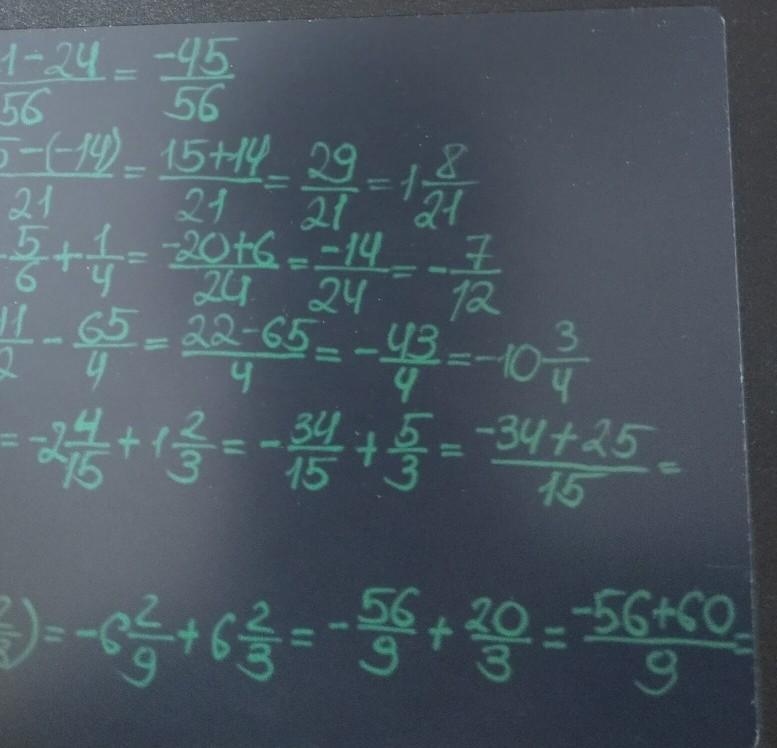 1-24/56 = -45/56
5-(-14)/21 = 15+14/21 = 29/21 = 1 8/21
-5/6 + 1/4 = -20+6/24 = -14/24 = -7/12
11/2 - 65/4 = 22-65/4 = -43/4 = -10 3/4
= -2 4/15 + 1 2/3 = -34/15 + 5/3 = -34+25/15 =
2/3) = -6 2/9 + 6 2/3 = -56/9 + 20/3 = -56+60/9 =